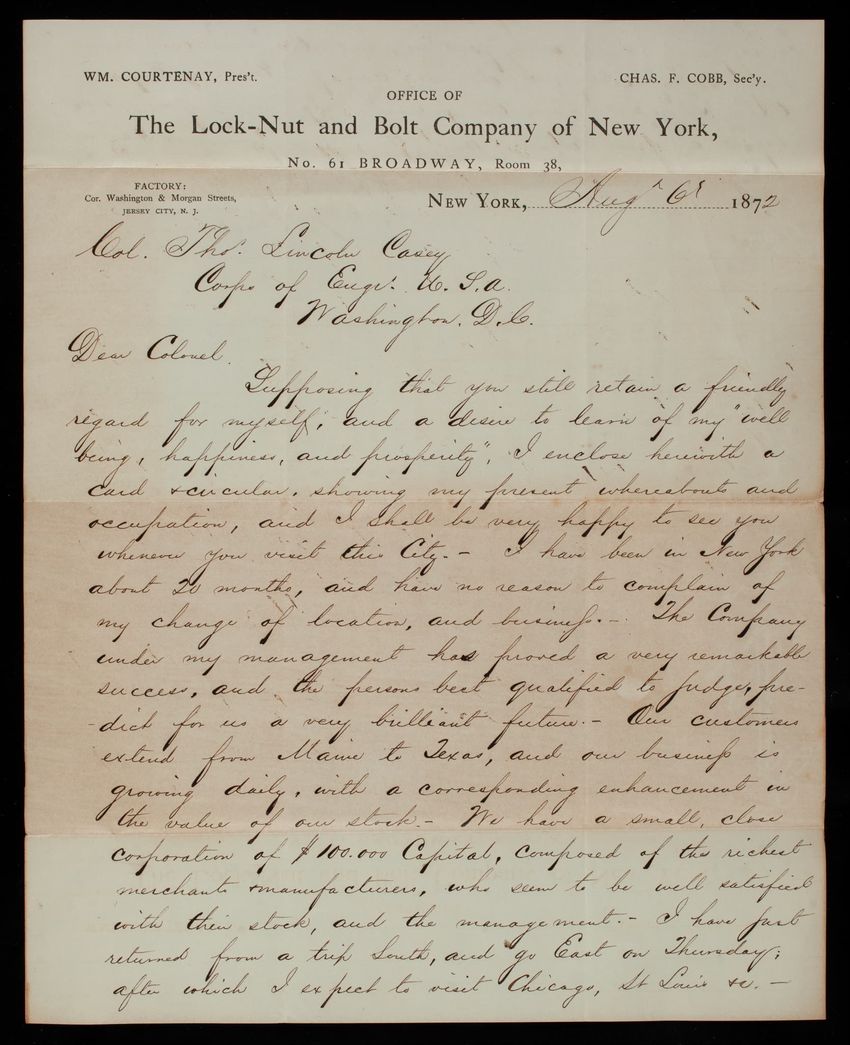 WM. COURTENAY, Pres't.
CHAS. F. COBB, Sec'y.
OFFICE OF
The Lock-Nut and Bolt Company of New York,
No. 61 BROADWAY, Room 38,
FACTORY:
Cor. Washington & Morgan Streets,
JERSEY CITY, N. J.
NEW YORK, Augt 6th 1872
Col. Thos. Lincoln Casey
Corps of Engrs. U. S. A.
Washington. D. C.
Dear Colonel.
Supposing that you still retain a friendly
regard for myself, and a desire to learn of my "well
being, happiness, and prosperity", I enclose herewith a
card & circular, showing my present whereabouts and
occupation, and I shall be very happy to see you
whenever you visit this City. - I have been in New York
about 20 months, and have no reason to complain of
my change of location, and business. - The Company
under my management has proved a very remarkable
success, and the persons best qualified to judge, pre-
-dict for us a very brilliant future. - Our customers
extend from Maine to Texas, and our business is
growing daily, with a corresponding enhancement in
the value of our stock. - We have a small, close
corporation of $100.000 Capital, composed of the richest
merchants & manufacturers, who seem to be well satisfied
with their stock, and the management. - I have just
returned from a trip South, and go East on Thursday;
after which I expect to visit Chicago, St Louis &c. -